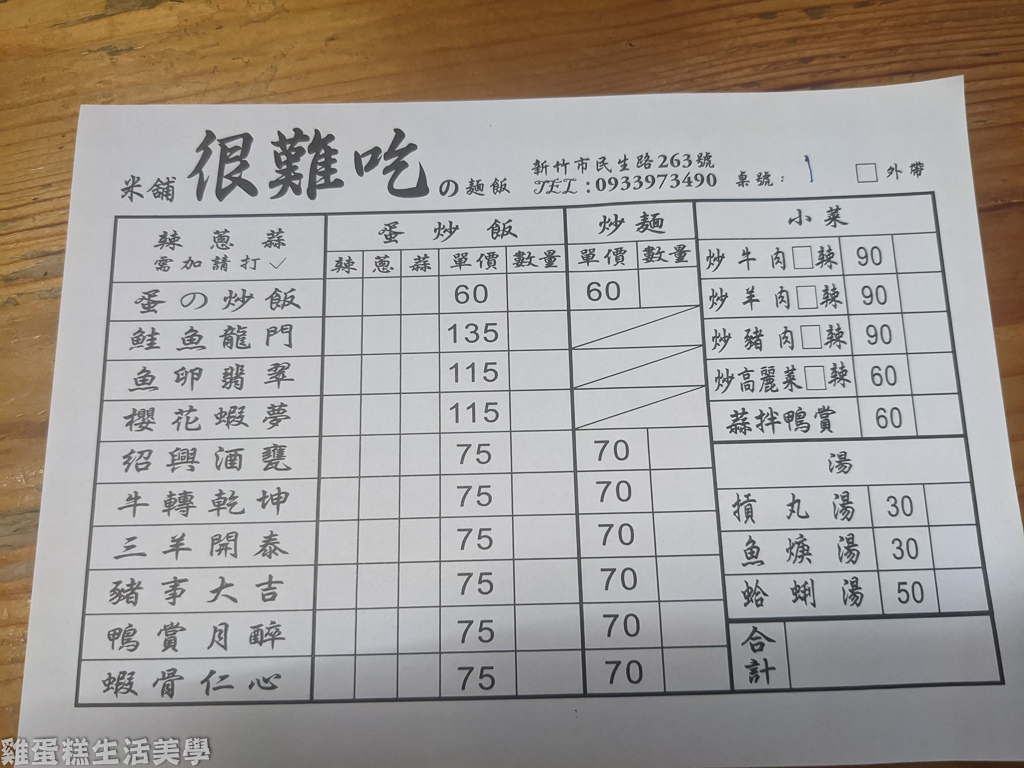 米舖 很難吃 の麵飯 新竹市民生路263號
TEL:0933973490 桌號: 1 □ 外帶
辣 蔥 蒜
需加請打✓
蛋炒飯 炒麵 小菜
辣 蔥 蒜 單價 數量 單價 數量
蛋の炒飯 60 60
鮭魚龍門 135
魚卵翡翠 115
櫻花蝦夢 115
紹興酒甕 75 70
牛轉乾坤 75 70
三羊開泰 75 70
豬事大吉 75 70
鴨賞月醉 75 70
蝦骨仁心 75 70
炒牛肉□辣 90
炒羊肉□辣 90
炒豬肉□辣 90
炒高麗菜□辣 60
蒜拌鴨賞 60
湯
摃丸湯 30
魚焿湯 30
蛤蜊湯 50
合計
雞蛋糕生活美學